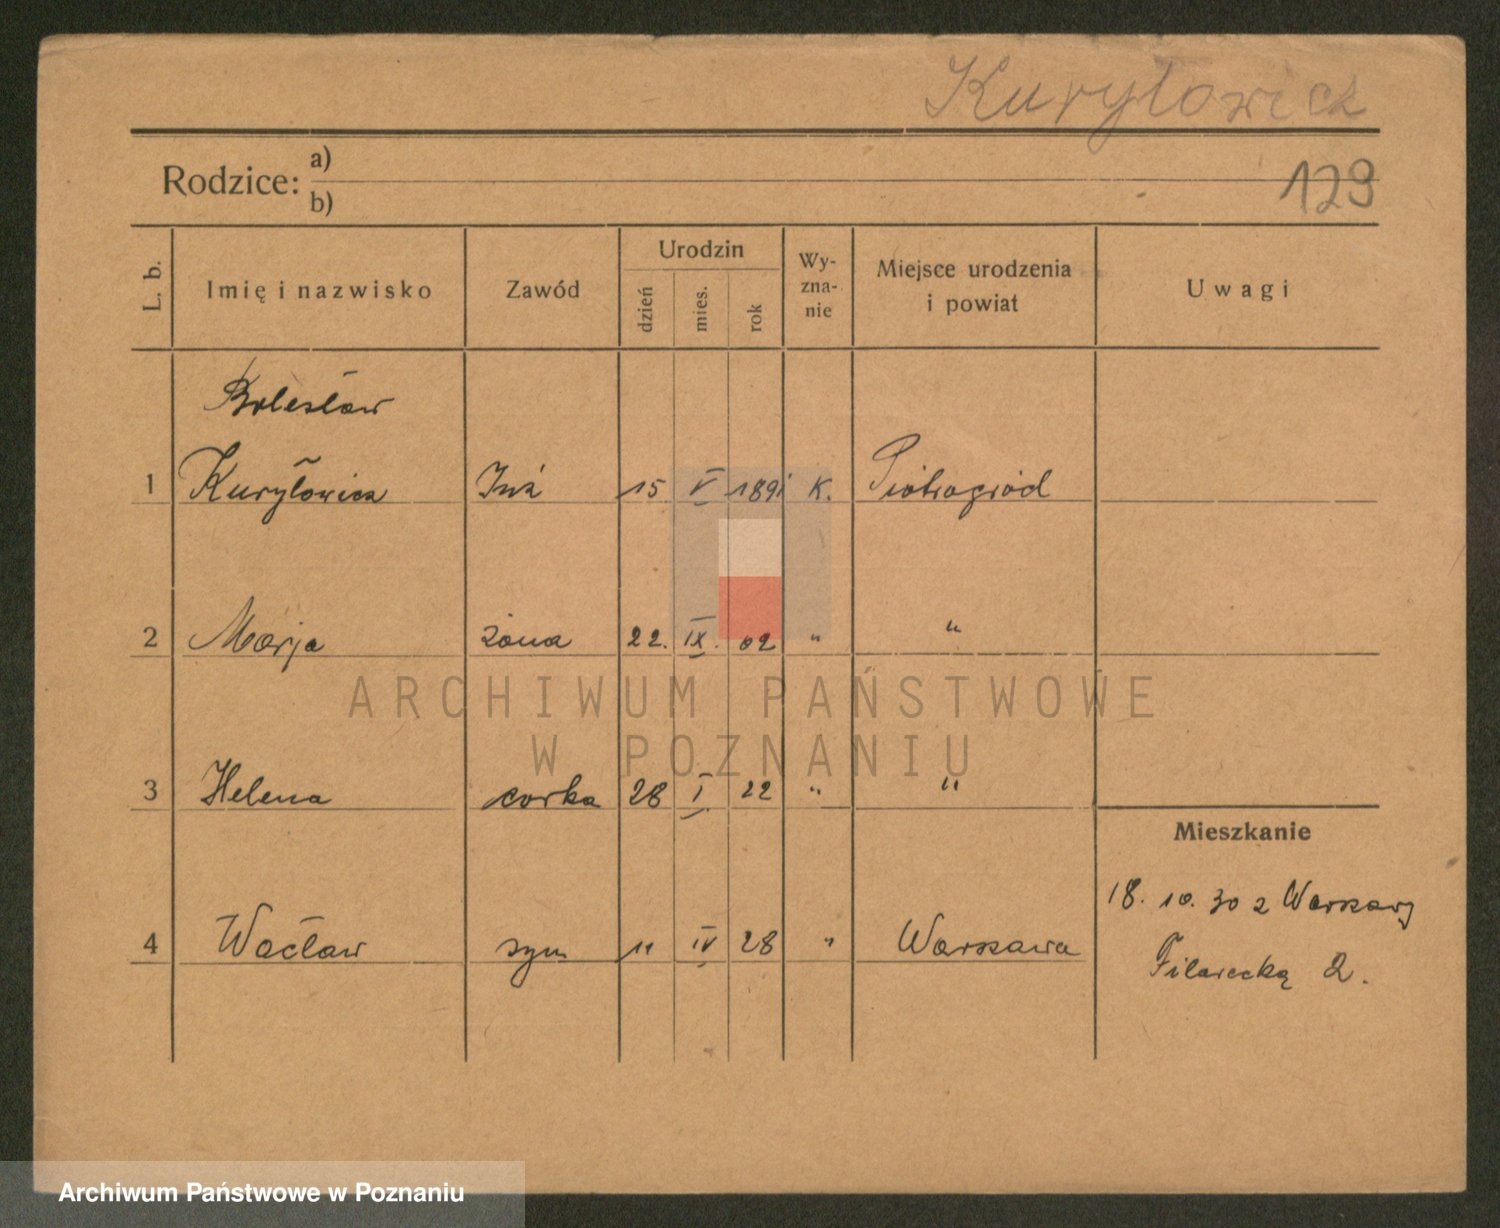 Kuryłowicz
Rodzice: a)
b)
129
L. b. Imię i nazwisko Zawód Urodzin dzień mies. rok Wy-zna-nie Miejsce urodzenia i powiat Uwagi
Bolesław
1 Kuryłowicz Inż 15 V 1891 K. Piotrogród
2 Marja żona 22. IX. 02 " "
ARCHIWUM PAŃSTWOWE
W POZNANIU
3 Helena corka 28 I 22 " "
Mieszkanie
18. 10. 30 z Warszawy
4 Wacław syn 11 IV 28 " Warszawa
Filarecka 2.
Archiwum Państwowe w Poznaniu